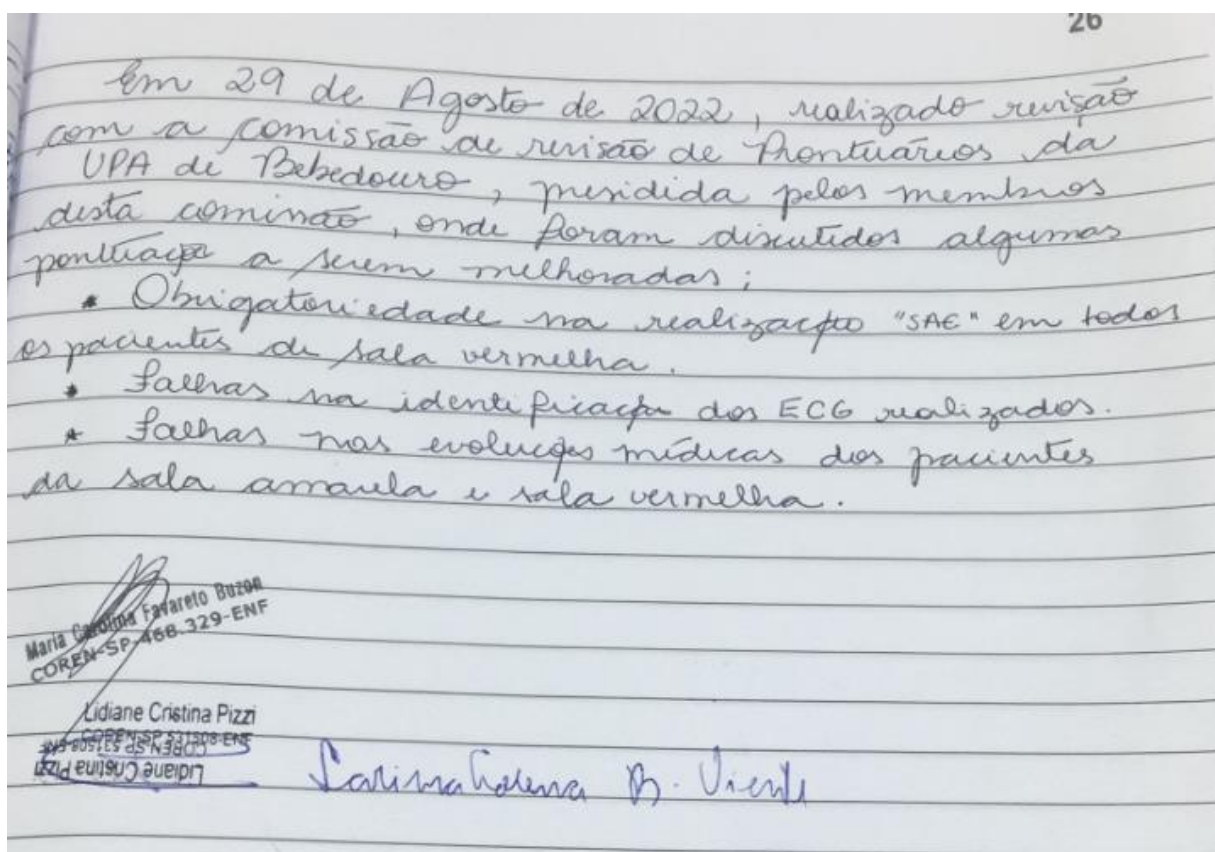 26
Em 29 de Agosto de 2022, realizado revisão
com a comissão de revisão de Prontuáreos da
UPA de Bebedouro, presidida pelos membros
desta comissão, onde foram discutidos algumas
a serem melhoradas;
* Obrigatoriedade na realização "SAE" em todos
os pacientes de sala vermelha.
* Falhas na identificação dos ECG realizados.
* Falhas nas evoluções médicas dos pacientes
da sala amarela e sala vermelha.
Maria Carolina Favareto Buzon
COREN-SP-468.329-ENF
Lidiane Cristina Pizzi
COREN-SP 531508-ENF
COREN SP 531508-ENF
Lidiane Cristina Pizzi
B. Vicente